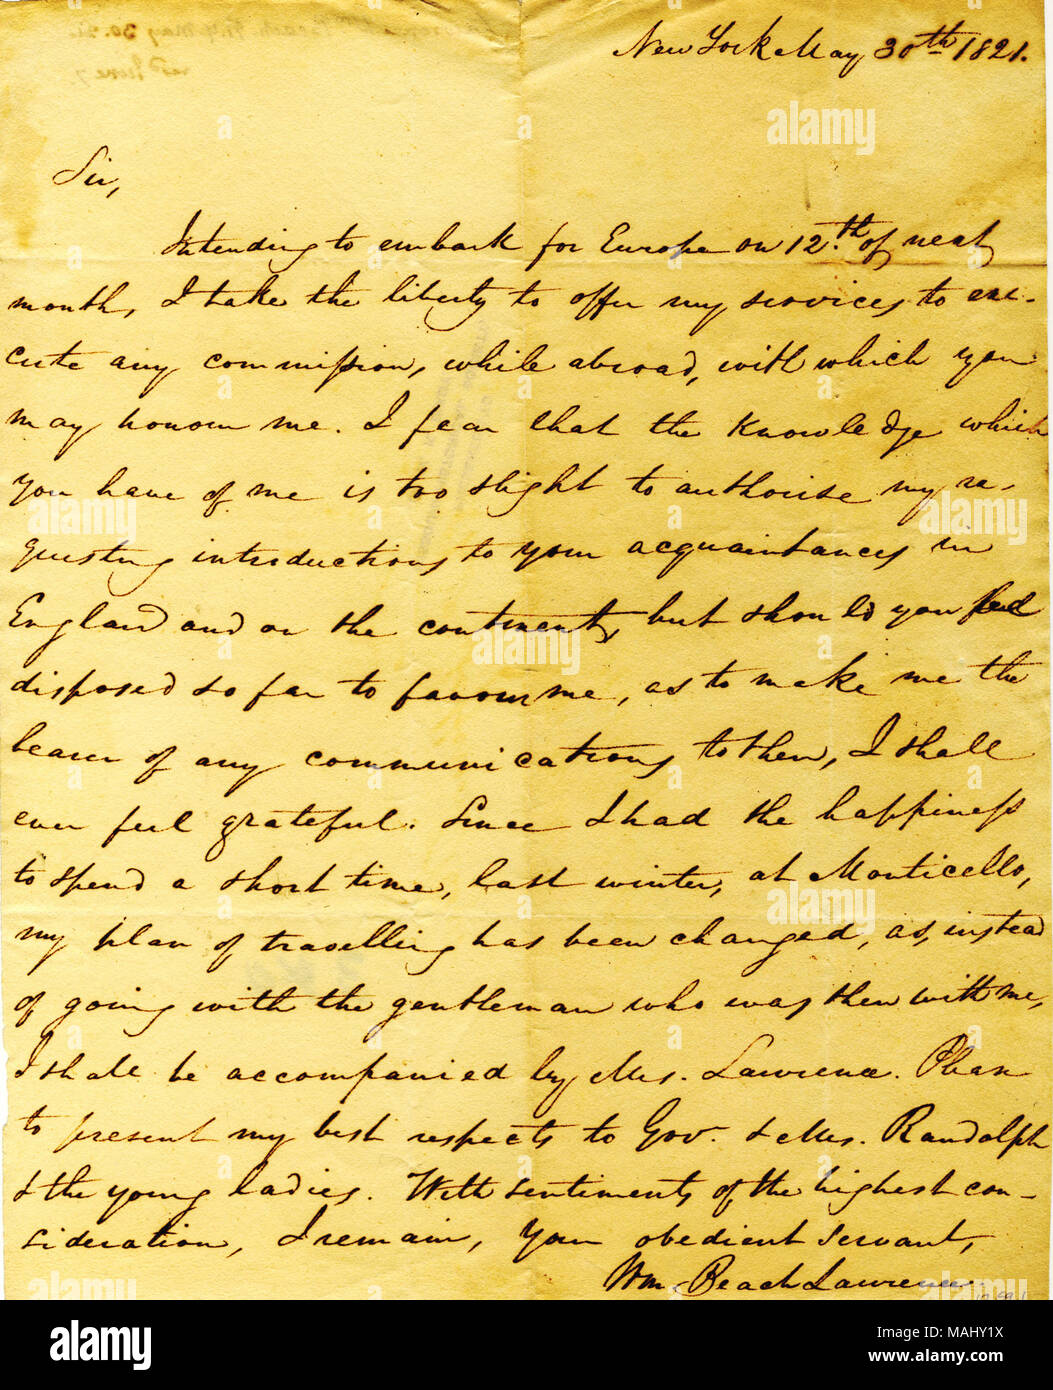 New York May 30th 1821.
Sir,
Intending to embark for Europe on 12.th of next
month, I take the liberty to offer my services to exe-
cute any commission, while abroad, with which you
may honour me. I fear that the knowledge which
you have of me is too slight to authorise my re-
questing introductions to your acquaintances in
England and on the continent, but should you feel
disposed so far to favour me, as to make me the
bearer of any communications to them, I shall
ever feel grateful. Since I had the happiness
to spend a short time, last winter, at Monticello,
my plan of travelling has been changed, as, instead
of going with the gentleman who was then with me,
I shall be accompanied by Mrs. Lawrence. Pleas
to present my best respects to Gov. & Mrs. Randolph
& the young ladies. With sentiments of the highest con-
sideration, I remain, your obedient servant,
Wm. Beach Lawrence
alamy
Image ID: MAHY1X
www.alamy.com